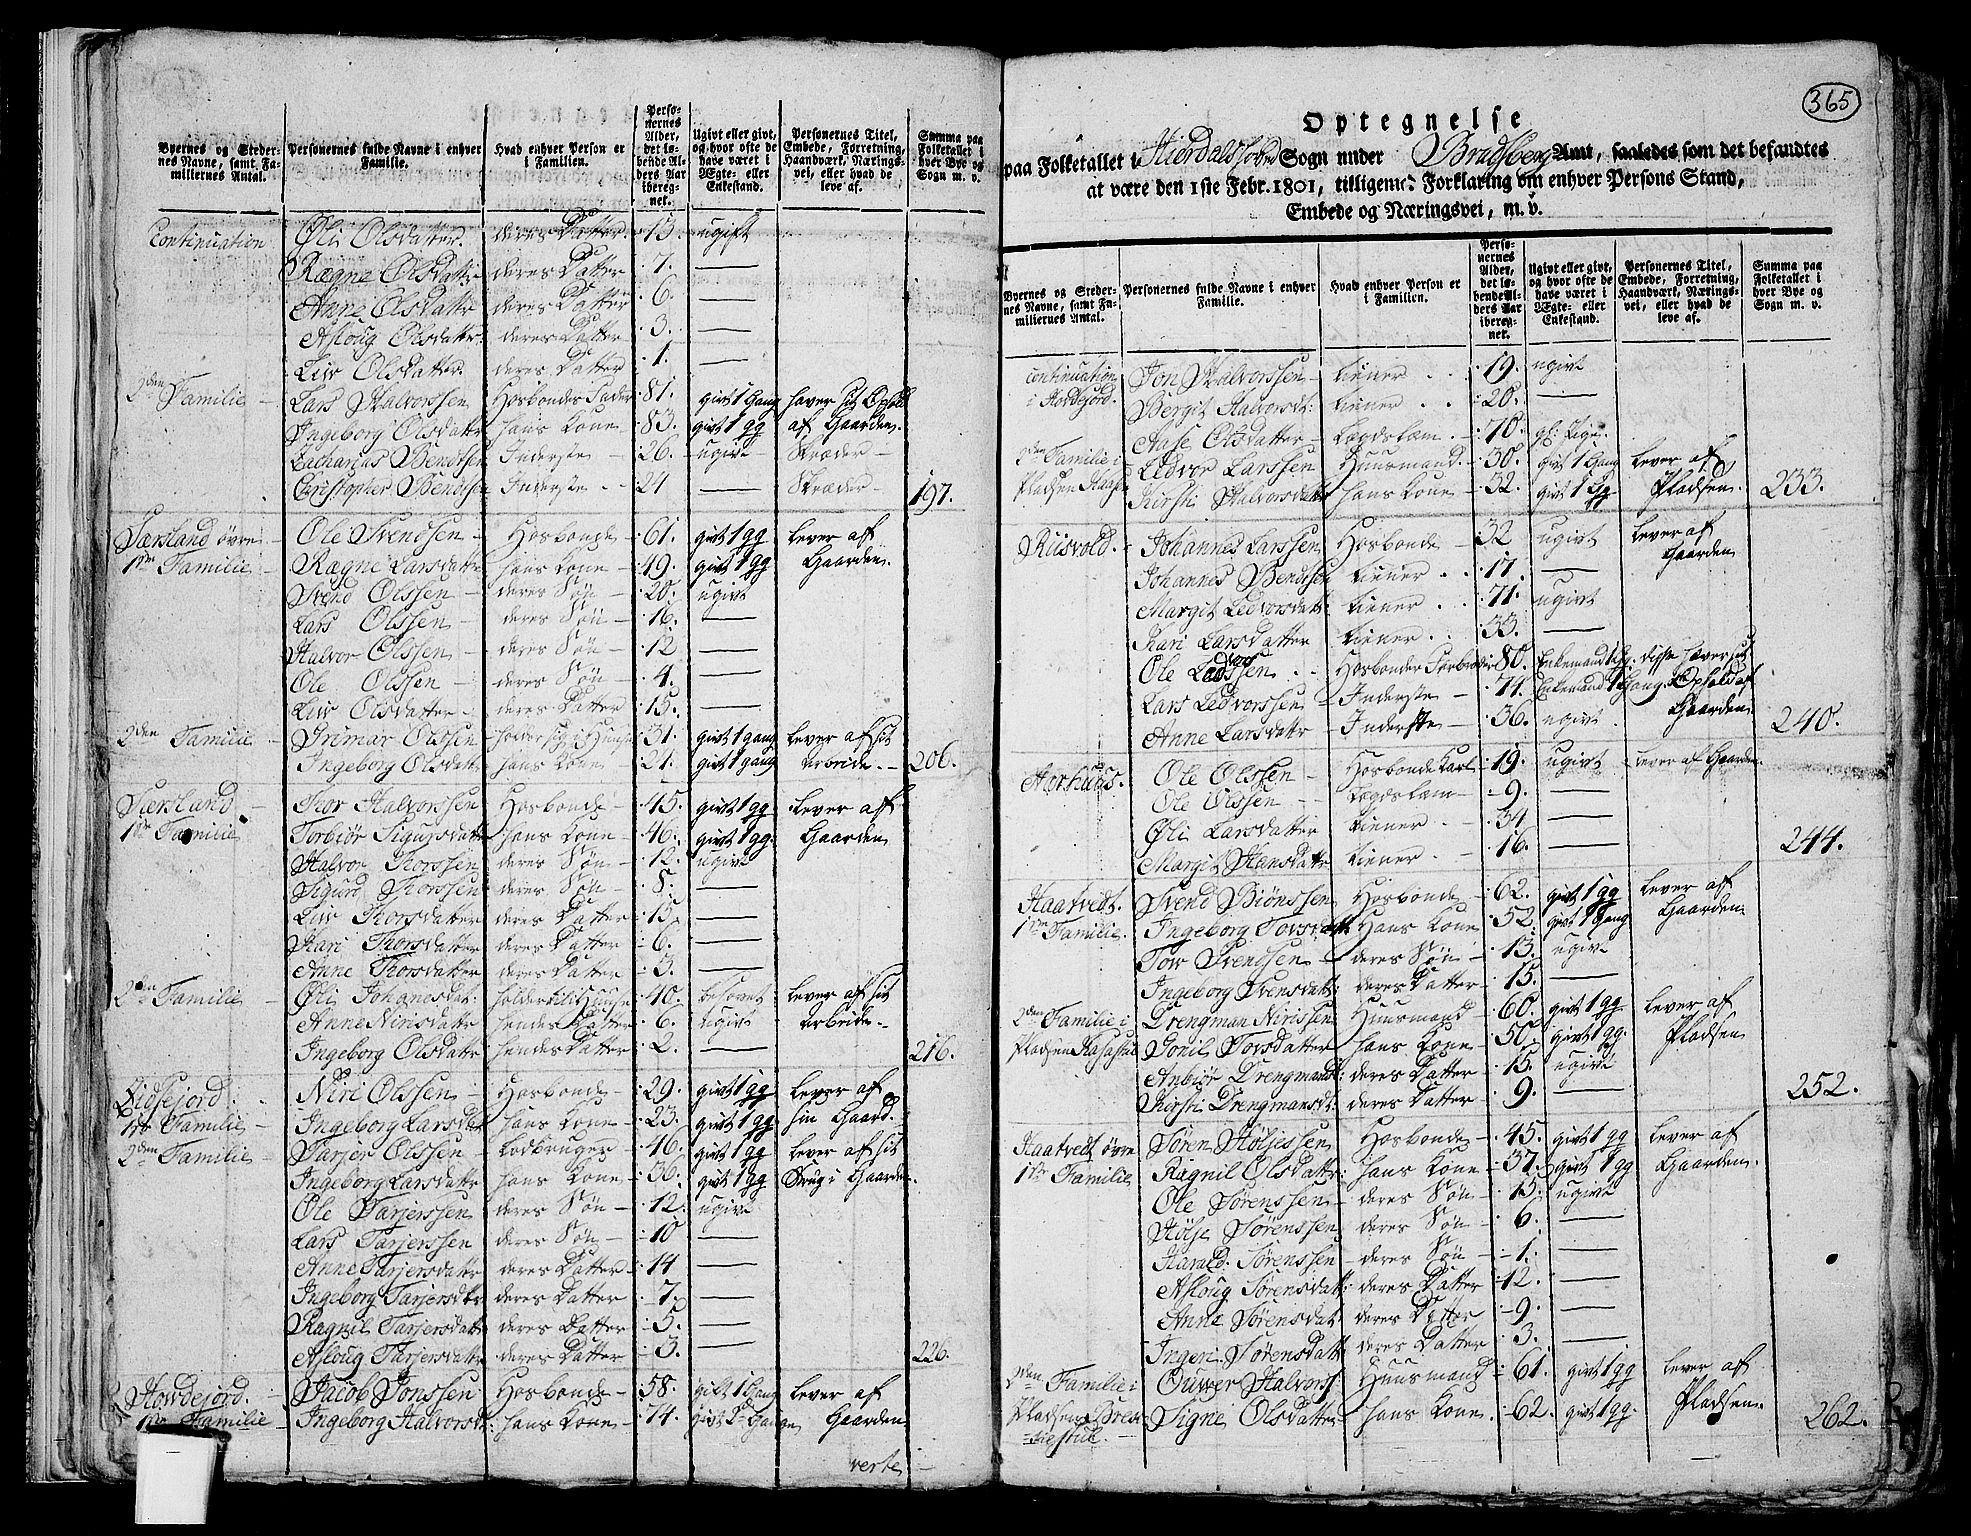 Byernes og Stedernes Navne, samt Familiernes Antal. | Personernes fulde Navne i enhver Familie. | Hvad enhver Person er i Familien. | Personernes Alder, det løbende Alders Aar iberegnet. | Ugivt eller givt, og hvor ofte de have været i Ægte- eller Enkestand. | Personernes Titel, Embede, Forretning, Haandværk, Næringsvei, eller hvad de leve af. | Summa paa Folketallet i hver Bye og Sogn m. v.
Continuation Øli Olsdatter. deres Datter 13. ugift
Rægne Olsdattr deres Datter 7. —
Anne Olsdattr deres Datter 6. —
Asloug Olsdattr deres Datter 3. —
Liv Olsdatter deres Datter 1. —
2den Familie Lars Halvorssen Hosbondes Fader 81. givt 1 Gang haver sit Ophold
Ingeborg Olsdattr hans Kone 83. givt 1 gg af Gaarden.
Zacharias Bendtsen Inderste 26. ugivt Skræder
Christopher Bendtsen Inderste 24 — Skræder 197.
Særsland øvre Ole Svendsen Hosbonde 61. givt 1 gg lever af
1ste Familie Rægne Larsdattr hans Kone 49. givt 1 gg Gaarden.
Svend Olssen deres Søn 20. ugivt
Lars Olssen deres Søn 16. —
Halvor Olssen deres Søn 12 —
Ole Olssen deres Søn 4. —
Liv Olsdatter deres Datter 15. —
2den Familie Grimar Olssen holder sig i Huuse 31. givt 1 gang lever af sit
Ingeborg Olsdattr hans Kone 21. givt 1 gang arbeide. 206.
Særsland Thor Halvorssen Hosbonde 45. givt 1 gg lever af
1ste Familie Torbiør Sigursdattr hans Kone 46. givt 1 gg. Gaarden
Halvor Thorssen deres Søn 12. ugivt
Sigurd Thorssen deres Søn 8. —
Liv Thorsdatter deres Datter 15. —
Kari Thorsdatter deres Datter 6. —
Anne Thorsdatter deres Datter 3. —
2den Familie Øli Johanesdat: 40. lever af sit
Anne Nirisdattr hendes Datter 6. ugivt arbeide.
Ingeborg Olsdattr hendes Datter 2. — 216.
Niri Olssen Hosbonde 29. givt 1 gg lever af
1ste Familie Ingeborg Larsdat hans Kone 23. givt 1 gg sin Gaard.
2den Familie Tarjer Olssen Lodbruger 46. givt 1 gg lever af sit
Ingeborg Larsdattr hans Kone 36. givt 1 gg Brug i Gaarden.
Ole Tarjerssen deres Søn 12. ugivt
Lars Tarjerssen deres Søn 10 —
Anne Tarjersdattr deres Datter 14 —
Ingeborg Tarjersdttr deres Datter 7. —
Ragnil Tarjersdattr deres Datter 5. —
Asloug Tarjersdattr deres Datter 3. — 226.
Howdejord. Jacob Jonssen Hosbonde 58. gift 1 Gang lever af
1ste Familie Ingeborg Halvorsd: hans Kone 74. givt 2 Gange Gaarden
verte
365
Optegnelse
paa Folketallet i Hierdals Sogn under Bradsberg Amt, saaledes som det befandtes
at være den 1ste Febr. 1801, tilligemed Forklaring om enhver Persons Stand,
Embede og Næringsvei, m. v.
Byernes og Stedernes Navne, samt Familiernes Antal. | Personernes fulde Navne i enhver Familie. | Hvad enhver Person er i Familien. | Personernes Alder, det løbende Alders Aar iberegnet. | Ugivt eller givt, og hvor ofte de have været i Ægte- eller Enkestand. | Personernes Titel, Embede, Forretning, Haandværk, Næringsvei, eller hvad de leve af. | Summa paa Folketallet i hver Bye og Sogn m. v.
continuation Jon Halvorssen tiener 19. ugivt
i Howdejord. Bergit Halvorsdt: tiener 20. —
Aase Olsdatter Lægdslam 70.
2den Familie i Ledvor Larssen Huusmand. 30. givt 1 Gang lever af
Pladsen Haasen Kirsti Halvorsdattr hans Kone 32. givt 1 gg Pladsen. 233.
Riisvold. Johannes Larssen Hosbonde 32 ugivt lever af
Johannes Bendtsen tiener 17. — Gaarden
Margit Ledvorsdatt: tiener 71. ugivt
Kari Larsdatter tiener 33. —
Ole Ledvorssen Hosbondes Farbroder 80. Enkemand 1 g: disse haver sit
Lars Ledvorssen Inderste 74. Enkemand 1 Gang. Ophold af
Anne Larsdattr Inderste 36. ugivt Gaarden 240.
Aarhuus. Ole Olssen Hosbonde Karl 19. ugivt lever af Gaarden
Ole Olssen Lægdslam 9. —
Øli Larsdatter tiener 34 —
Margit Hansdattr tiener 16. — 244.
Haatvedt. Svend Biønssen Hosbonde 62. givt 1 gg lever af
1ste Familie. Ingeborg Tovsdattr hans Kone 52. givt 1 Gang Gaarden
Tow Svendsen deres Søn 13. ugivt
Ingeborg Svensdatt: deres Datter 15. —
2den Familie i Drengman Nirissen Huusmand 60. givt 1 gg lever af
Pladsen Gonil Tovsdatter hans Kone 50. givt 1 gg. Pladsen
Anbiør Drengmansd: deres Datter 15. ugivt
Kirsti Drengmansdt: deres Datter 9. — 252.
Haatvedt øvre Søren Høljessen Hosbonde 45. givt 1 gg lever af
1ste Familie Ragnil Olsdattr: hans Kone 37. givt 1 gg Gaarden.
Ole Sørenssen deres Søn 15. ugivt
Hølje Sørenssen deres Søn 6. —
Harald Sørenssen deres Søn 1. —
Asloug Sørensdatt: deres Datter 12. —
Anne Sørensdat: deres Datter 9. —
Ingeri Sørensdatt deres Datter 3. —
2den Familie i Ouwer Halvorss Huusmand 61. givt 1 gg lever af
Pladsen Signe Olsdatter hans Kone. 62. givt 1 gg. Pladsen. 262.